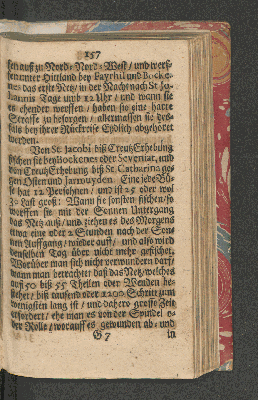 157
sen auß zu Nord-Nord-West / und werf-
fen unter Hittland bey Layrhil und Bocke-
nes das erste Netz / in der Nacht nach St Jo-
hannis Tage umb 12 Uhr / und wann sie
es ehender werffen / haben sie eine harte
Straffe zu besorgen / allermassen sie des-
hals bey ihrer Rückreise Eydlich abgehöret
werden.
Von St. Jacobi biß Creutz Erhebung
fischen sie bey Bockenes oder Seveniar, und
von Creutz Erhebung biß St. Catharina ge-
gen Osten und Jarmuyden. Eine jede Bü-
se hat 12 Persohnen / und ist 25 oder wol
30 Last groß: Wann sie sonsten fischen / so
werffen sie mit der Sonnen Untergang
das Netz auß / und ziehen es des Morgens
etwa eine oder 2 Stunden nach der Son-
nen Auffgang / wieder auff / und also wird
denselben Tag über nicht mehr gefischet.
Worüber man sich nicht verwundern darf /
wann man betrachtet daß das Netz / welches
auß 50 biß 55 Theilen oder Wenden be-
stehet / biß tausend oder 1200 Schritt zum
wenigsten lang ist / und dahero grosse Zeit
erfordert / ehe man es von der Spindel o-
der Rolle / worauff es gewunden ab- und
G 7 in